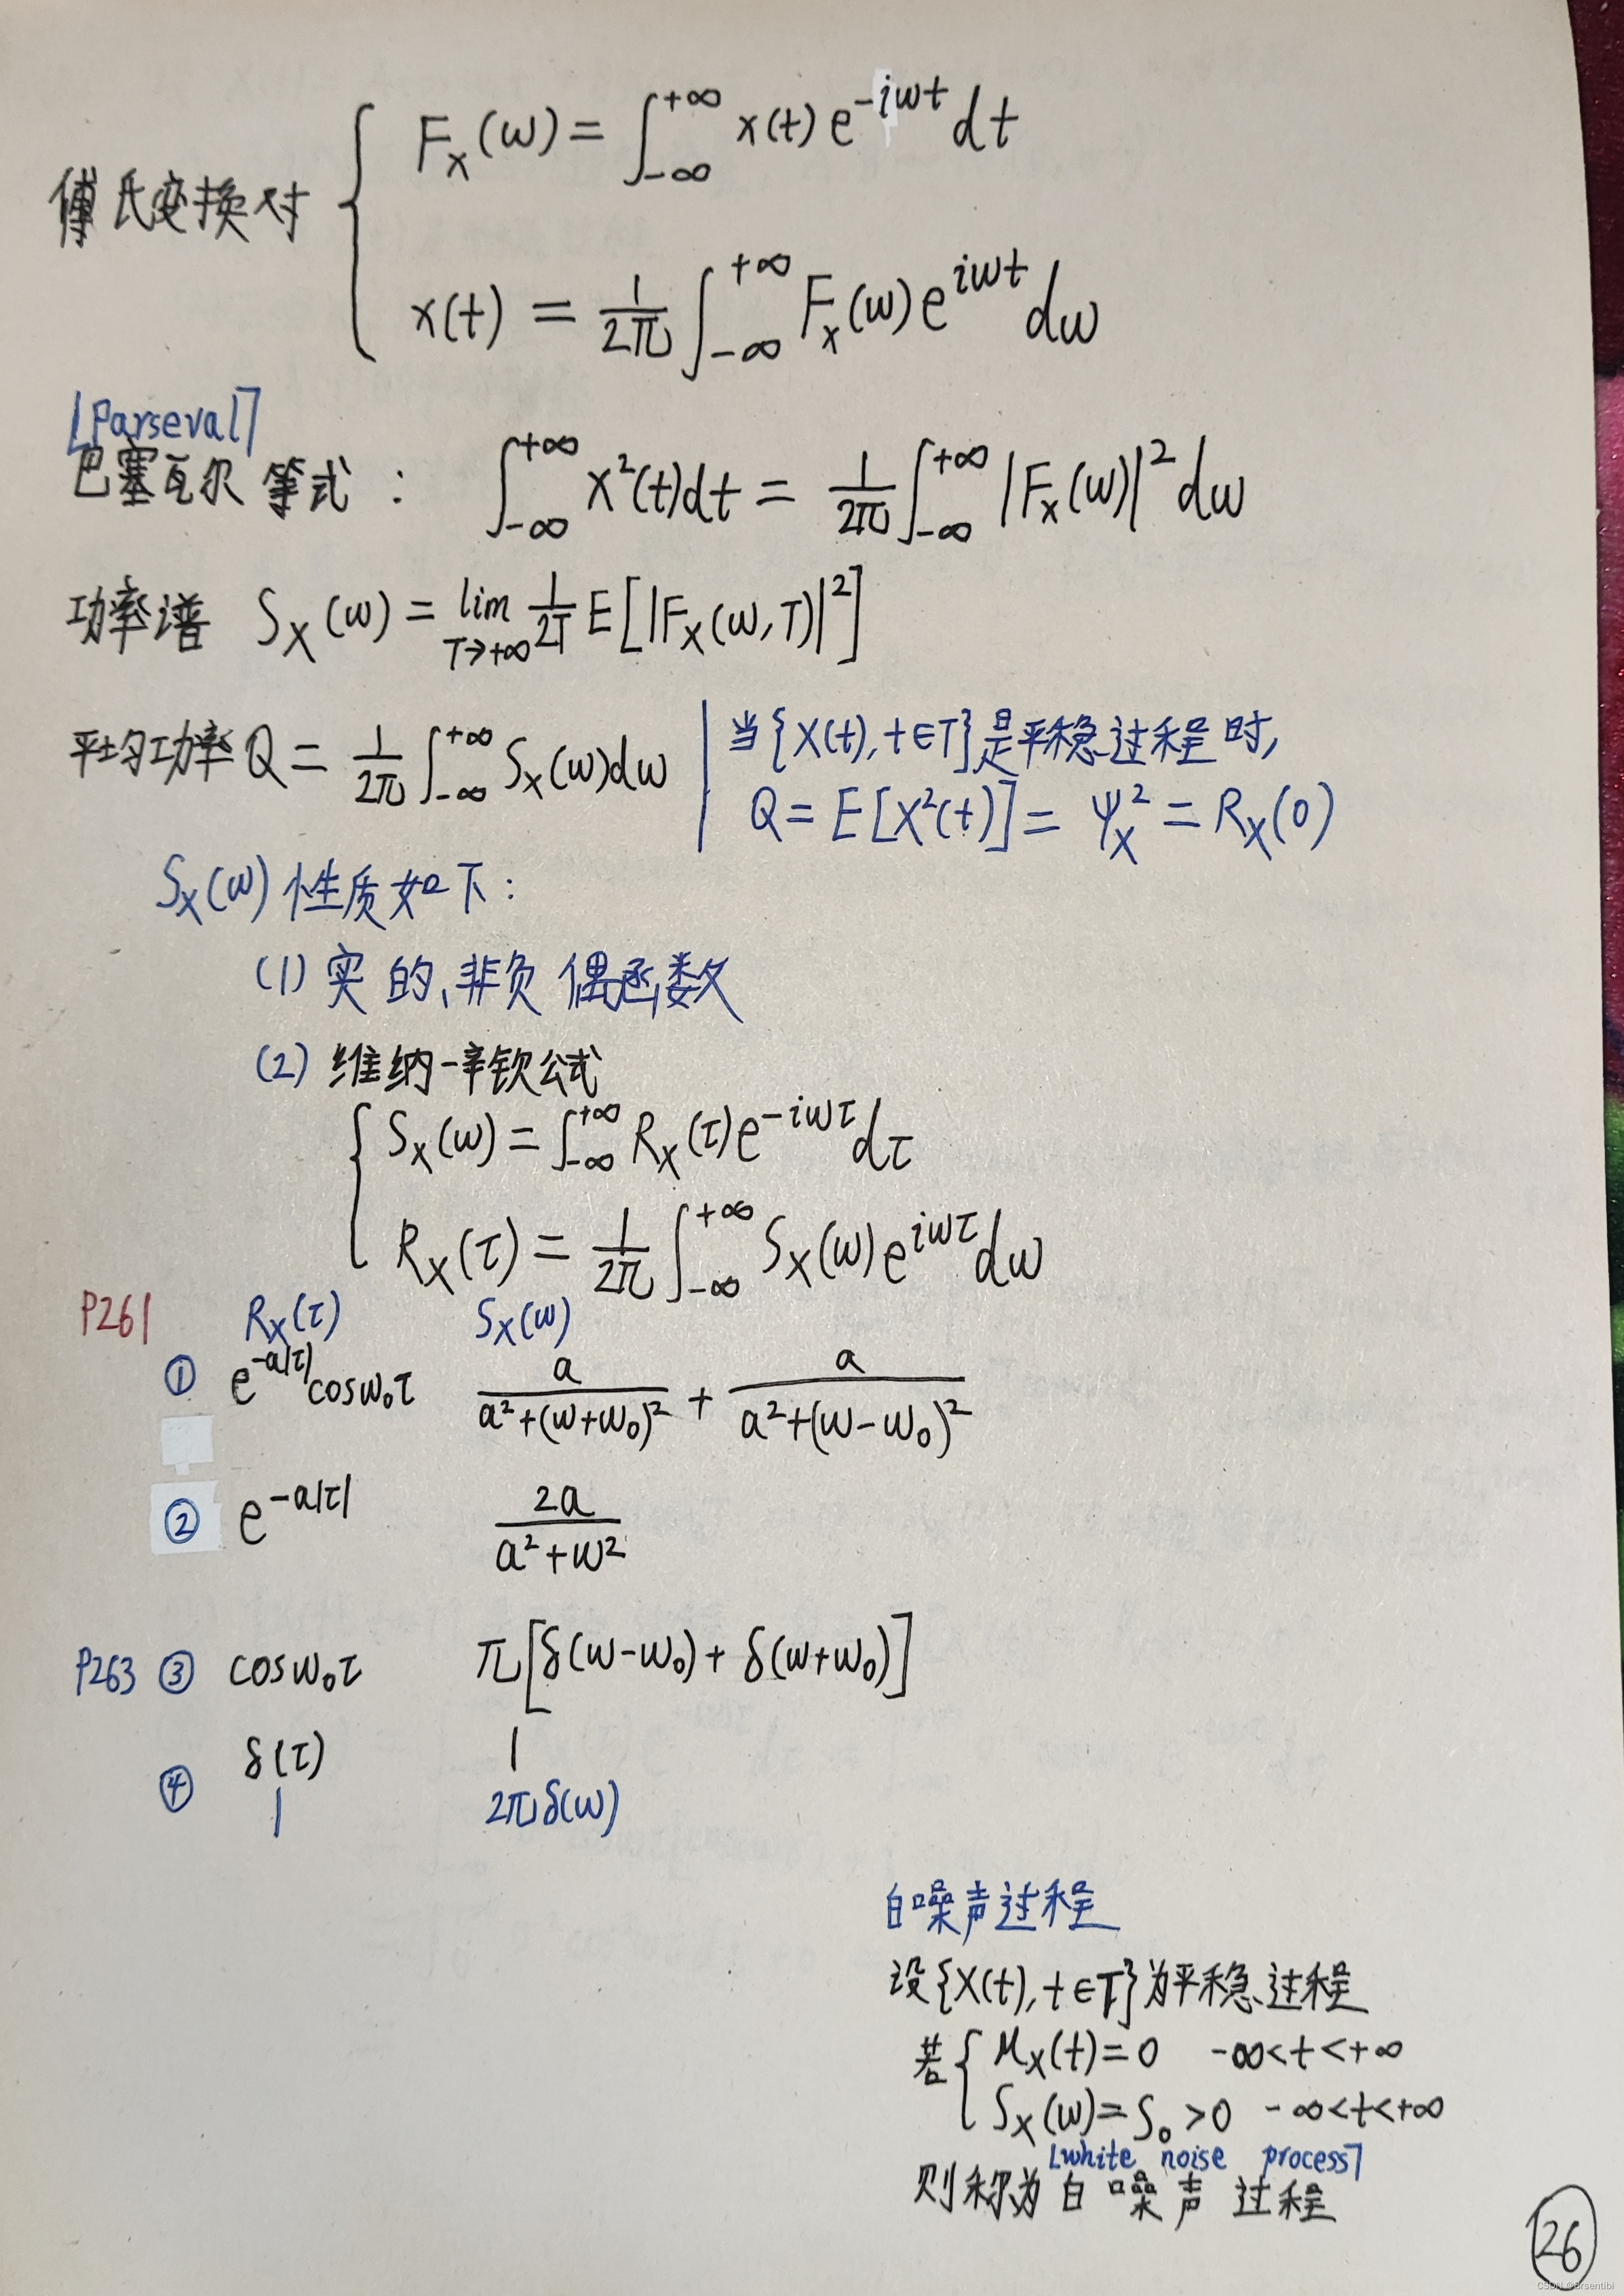 傅氏变换对 { F_x(ω) = ∫_{-∞}^{+∞} x(t) e^{-iωt} dt
x(t) = 1/2π ∫_{-∞}^{+∞} F_x(ω) e^{iωt} dω
[Parseval]
巴塞瓦尔等式： ∫_{-∞}^{+∞} x²(t)dt = 1/2π ∫_{-∞}^{+∞} |F_x(ω)|² dω
功率谱 S_X(ω) = lim_{T→+∞} 1/2T E[|F_X(ω,T)|²]
平均功率 Q = 1/2π ∫_{-∞}^{+∞} S_X(ω)dω
当{X(t), t∈T}是平稳过程时,
Q = E[X²(t)] = Ψ_X² = R_X(0)
S_X(ω) 性质如下：
(1) 实的、非负偶函数
(2) 维纳-辛钦公式
{ S_X(ω) = ∫_{-∞}^{+∞} R_X(τ) e^{-iωτ} dτ
R_X(τ) = 1/2π ∫_{-∞}^{+∞} S_X(ω) e^{iωτ} dω
P261 R_X(τ) S_X(ω)
① e^{-a|τ|} cosω₀τ a/(a²+(ω+ω₀)²) + a/(a²+(ω-ω₀)²)
② e^{-a|τ|} 2a/(a²+ω²)
P263 ③ cosω₀τ π[δ(ω-ω₀) + δ(ω+ω₀)]
④ δ(τ) 1
1 2πδ(ω)
白噪声过程
设{X(t), t∈T}为平稳过程
若 { μ_X(t) = 0 -∞<t<+∞
S_X(ω) = S₀ >0 -∞<t<+∞
[white noise process]
则称为白噪声过程
26
CSDN @Brsentibi